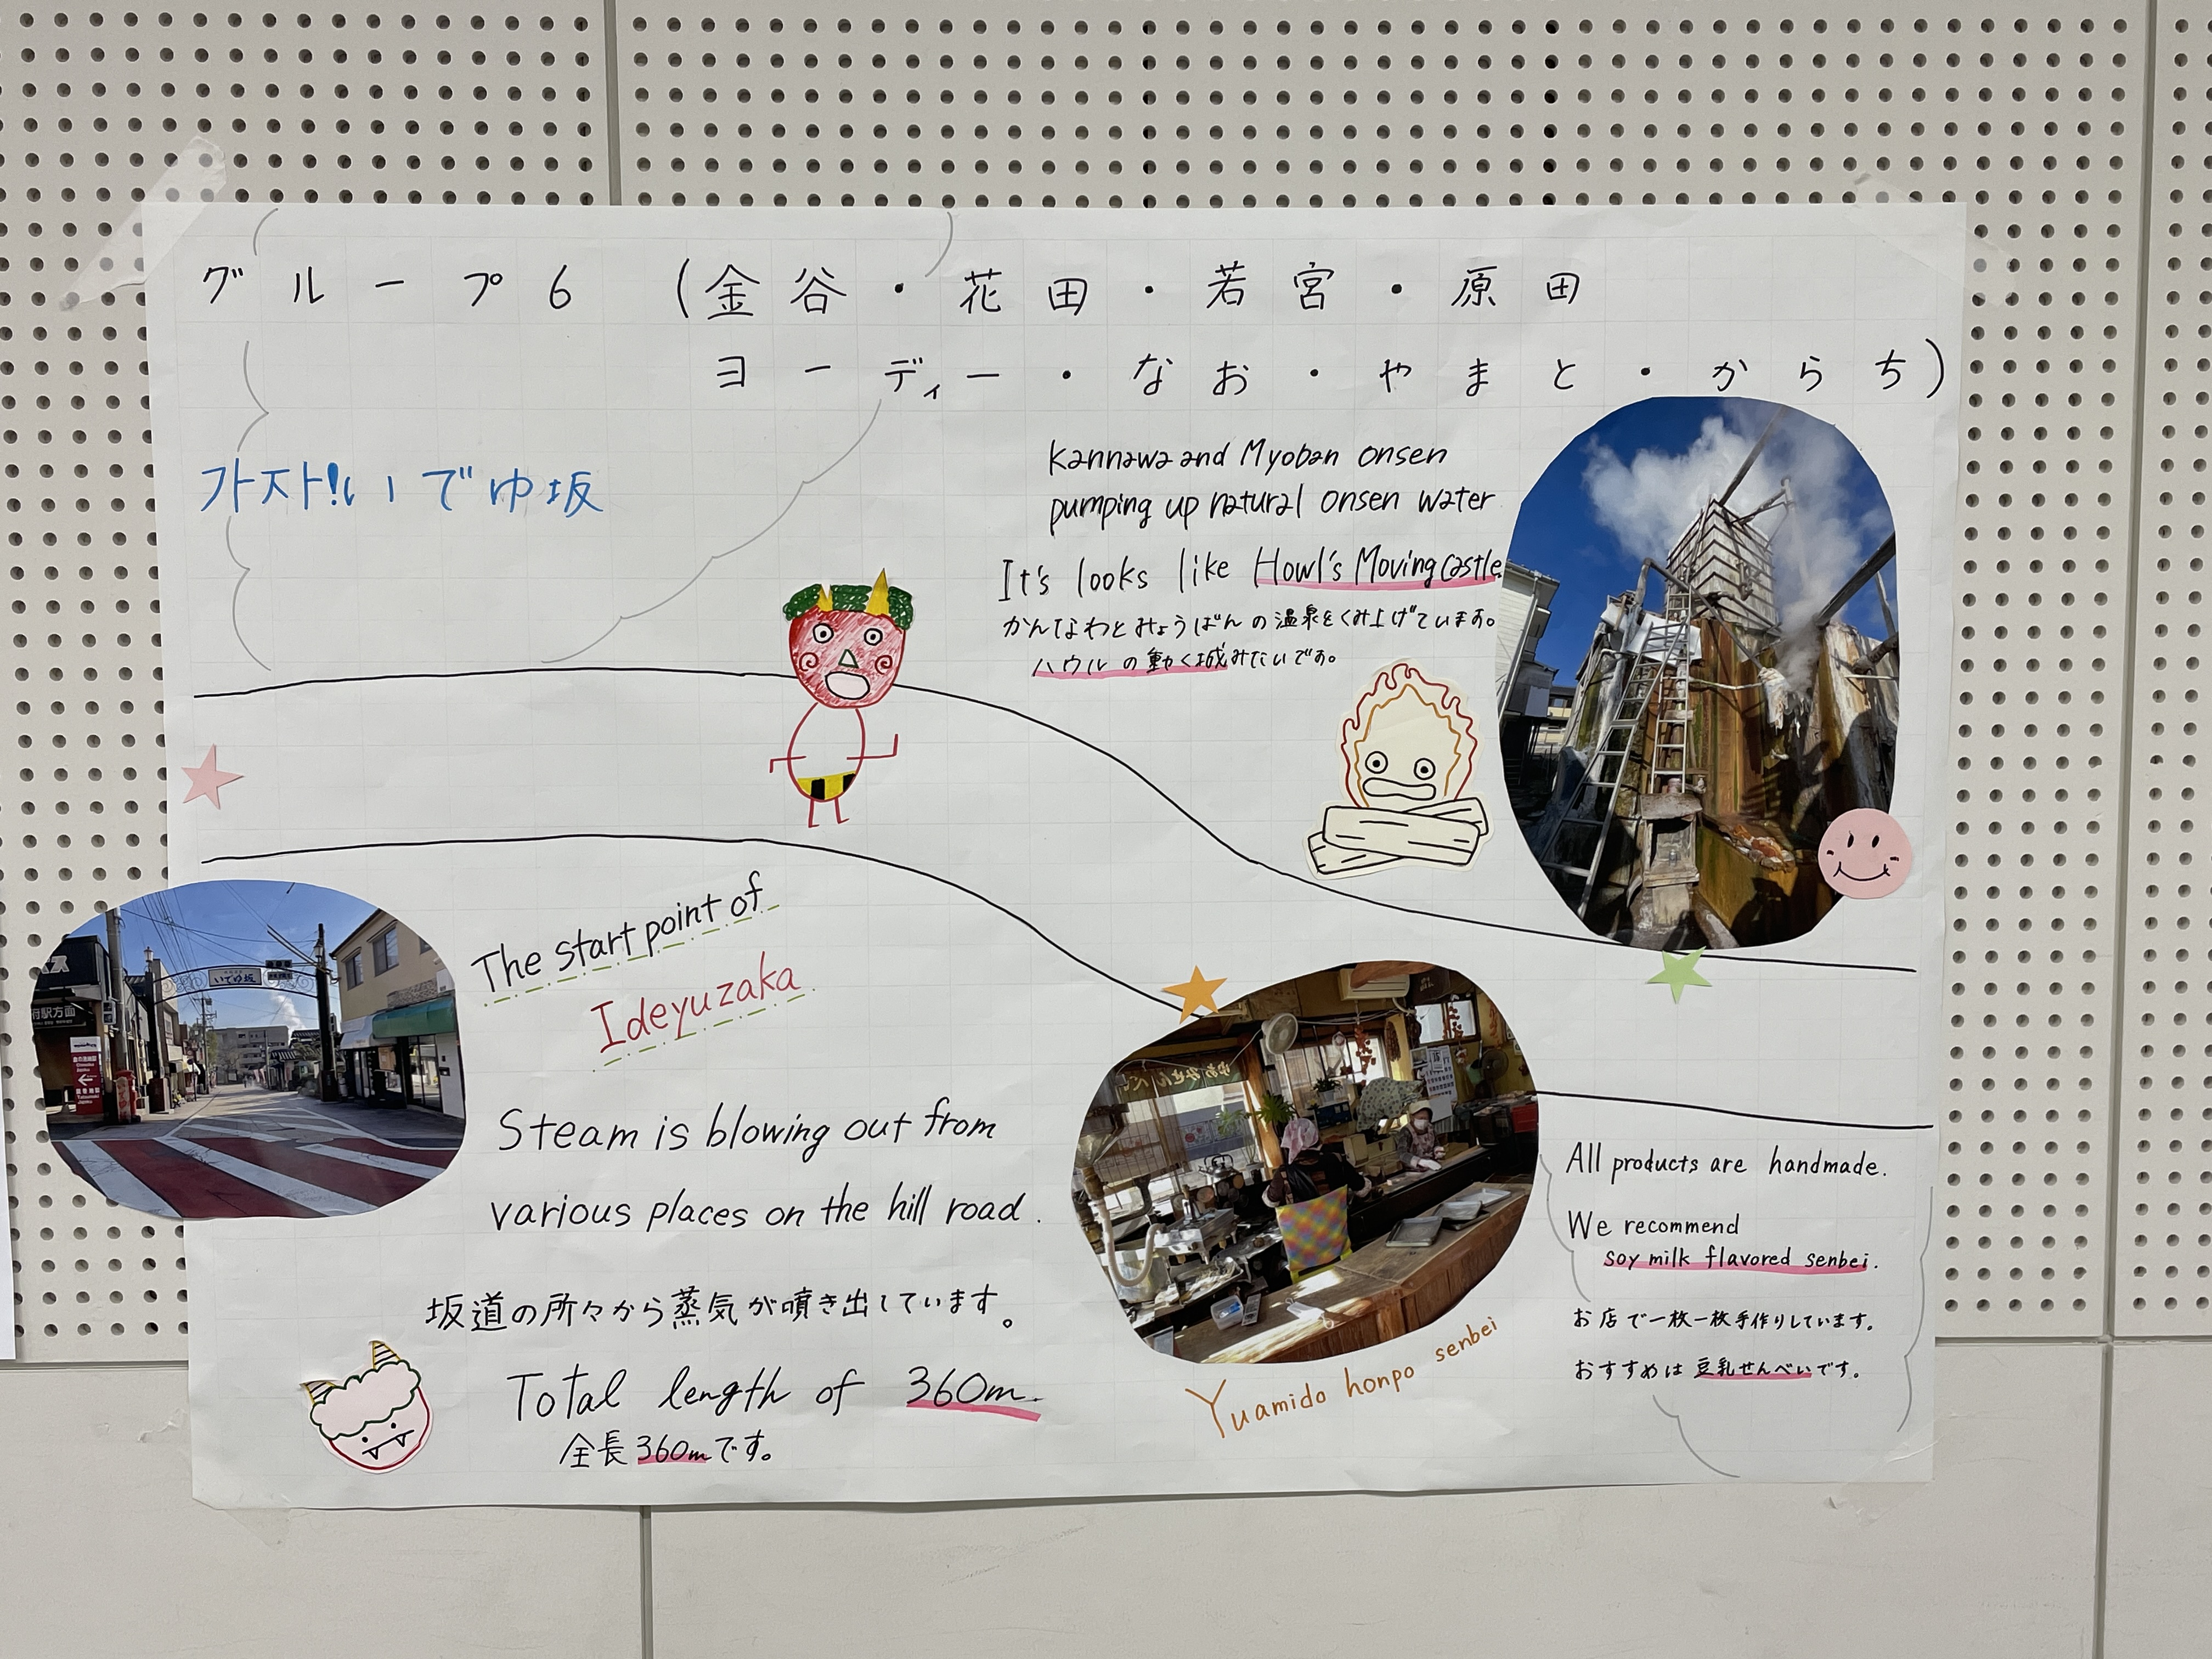 グループ6 (金谷・花田・若宮・原田
ヨーディー・なお・やまと・からち)
가자!! いでゆ坂
Kannawa and Myoban onsen
pumping up natural onsen water
It's looks like Howl's Moving castle.
かんなわとみょうばんの温泉をくみ上げています。
ハウルの動く城みたいです。
いでゆ坂
府駅方面
The start point of
Ideyuzaka
Steam is blowing out from
various places on the hill road.
坂道の所々から蒸気が噴き出しています。
Total length of 360m.
全長360mです。
Yuamido honpo senbei
All products are handmade.
We recommend
soy milk flavored senbei.
お店で一枚一枚手作りしています。
おすすめは豆乳せんべいです。